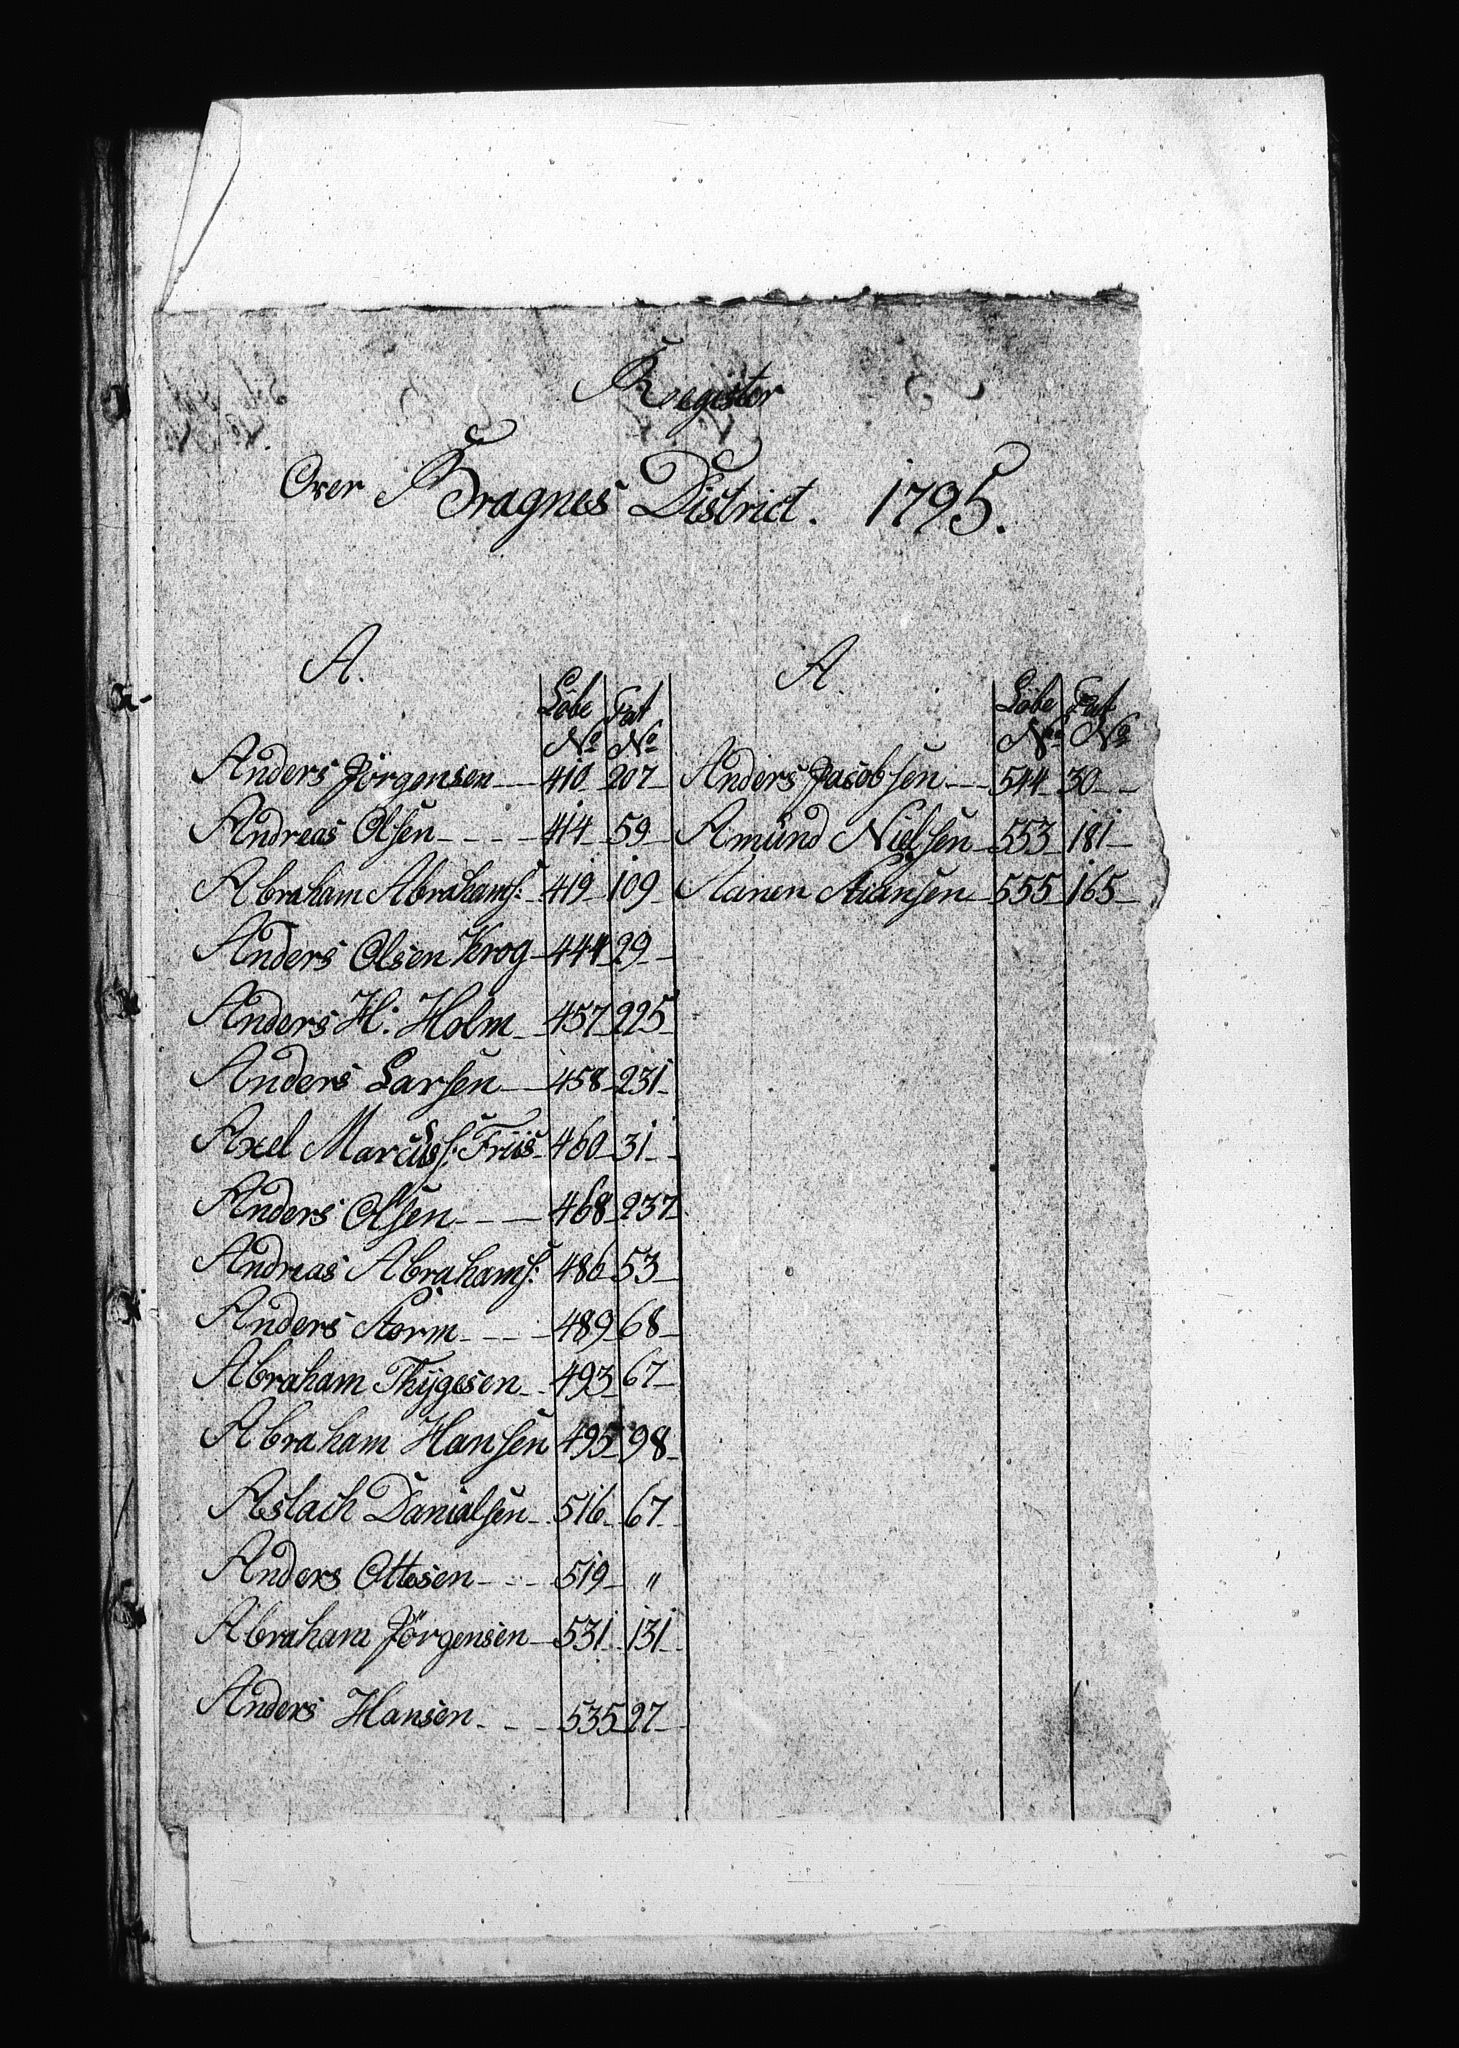 Register
Over Bragnes District. 1795.
A.
Löbe Pat
No No
Anders Jörgensen 410 207
Andreas Olsen 414 59
Abraham Abrahams: 419 109
Anders Olsen Krog 444 29
Anders H: Holm 457 225
Anders Larsen 458 231
Axel Marcuss: Friis 460 31
Anders Olsen 468 237
Andreas Abrahams: 486 53
Anders Storm 489 68
Abraham Thygesen 493 67
Abraham Hansen 495 98
Aslach Danialsen 516 67
Anders Ottesen 519 "
Abraham Jörgensen 531 131
Anders Hansen 535 27
A.
Löbe Pat
No No
Anders Jacobsen 544 30
Amund Nielsen 553 181
555 165